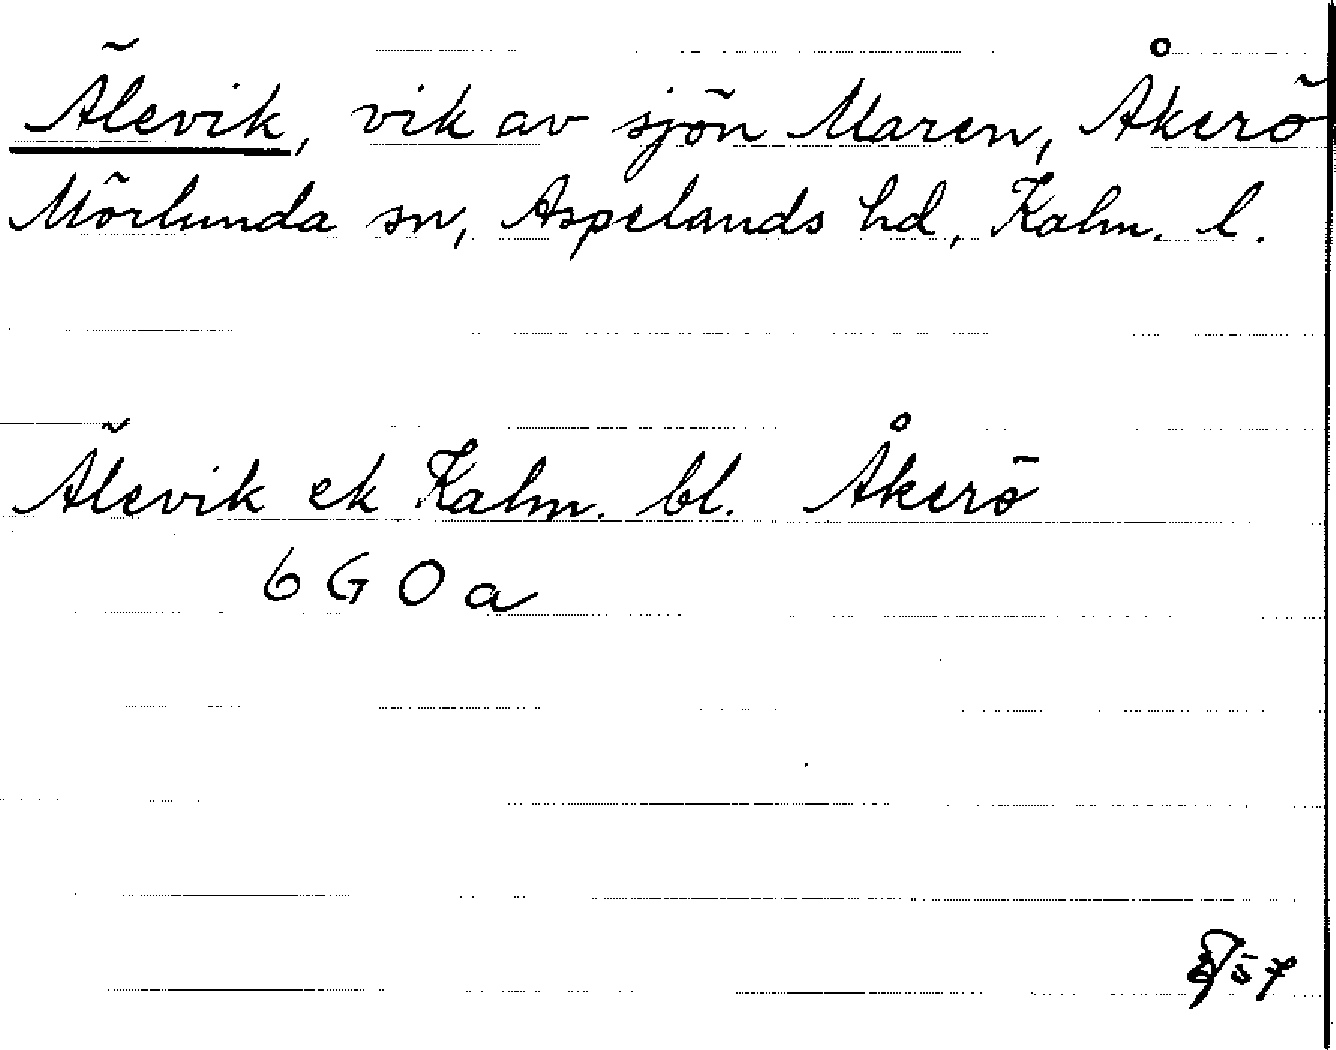 Älevik, vik av sjön Maren, Åkerö
Mörlunda sn, Aspelands hd, Kalm. l.
Älevik ek Kalm. bl. Åkerö
6 G 0 a
57